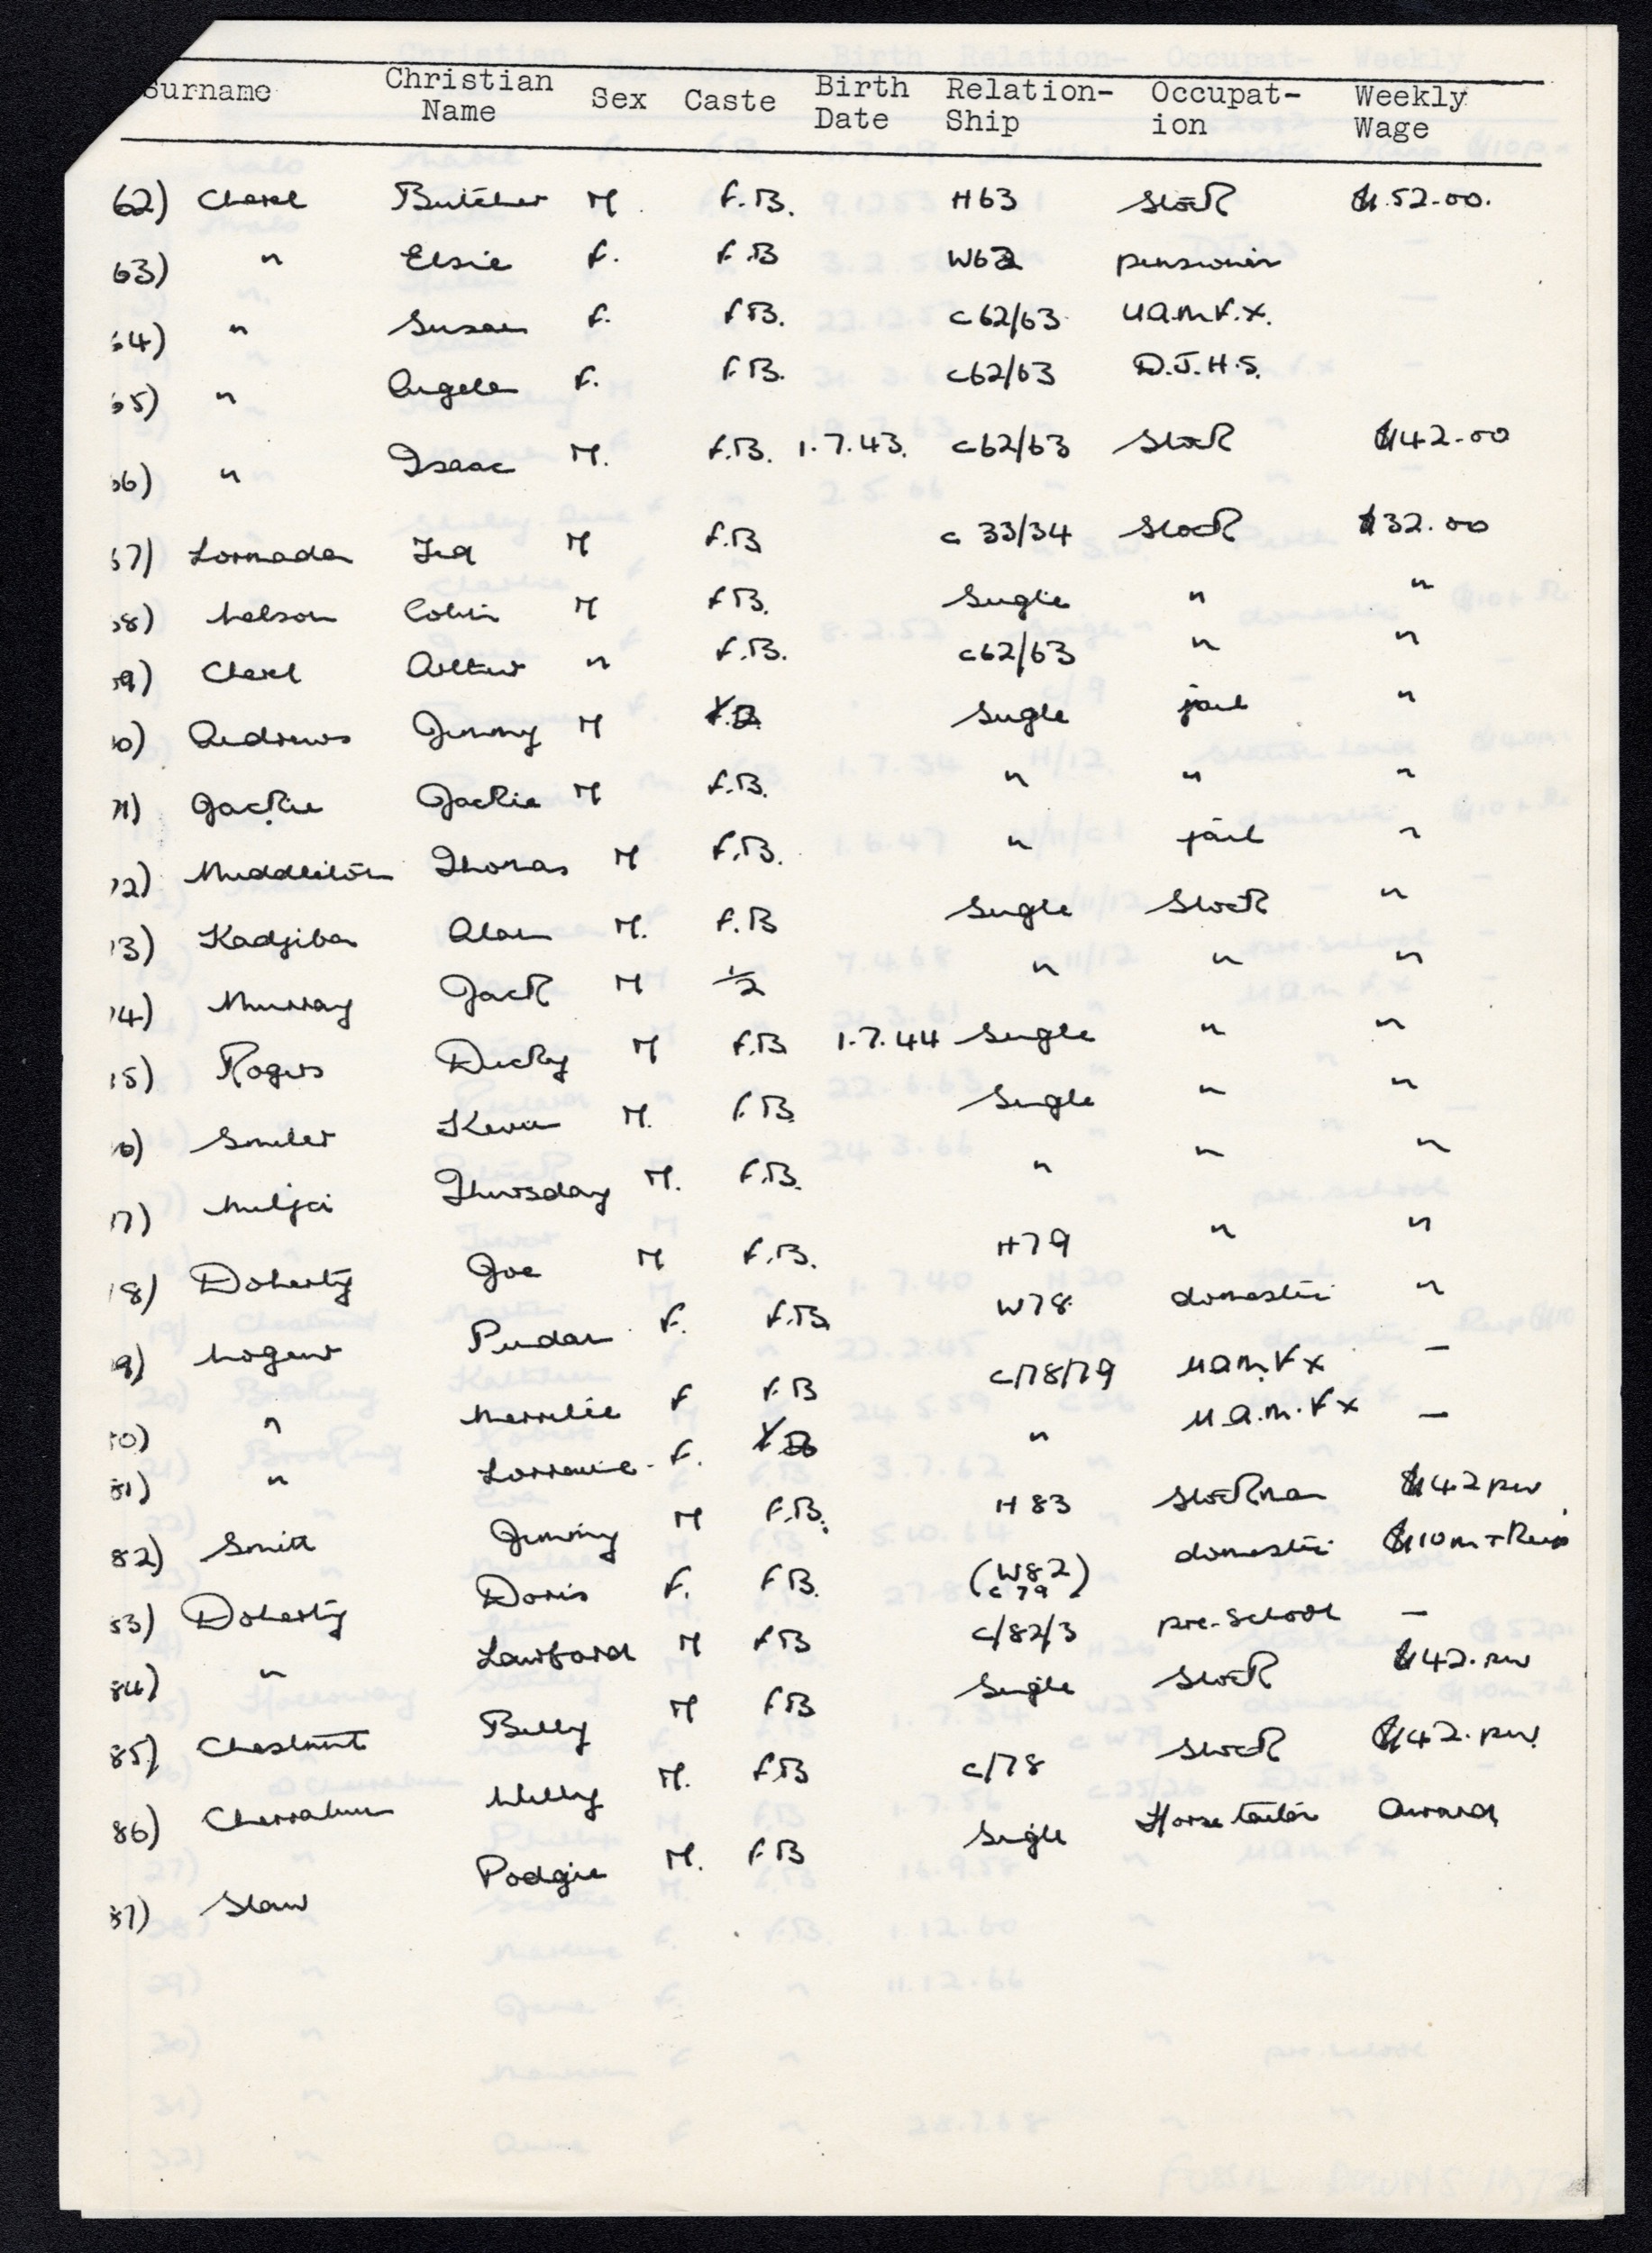 Surname Christian Name Sex Caste Birth Date Relation-Ship Occupat-ion Weekly Wage
62) Cherel Butcher M. F.B. H63 Stock $52-00.
63) " Elsie F. F.B W62 pensioner
64) " Susan F. F.B. c62/63 U.A.M.F.X.
65) " Angela F. F.B. c62/63 D.J.H.S.
66) " Isaac M. F.B. 1.7.43. c62/63 Stock $42-00
67) Lormada Ted M F.B c 33/34 Stock $32.00
68) Nelson Colin M F.B. Single " "
69) Cherel Arthur " F.B. c62/63 " "
70) Andrews Jimmy M Single jail "
71) Jackie Jackie M F.B. " " "
72) Middleton Thomas M F.B. " jail "
73) Kadjiba Alan M. F.B Single Stock "
74) Murray Jack M ½ " " "
75) Rogers Dicky M F.B 1.7.44 Single " "
76) Smiler Kevin M. F.B. Single " "
77) Thursday M. F.B. " " "
78) Doherty Joe M F.B. H79 " "
79) Nogent F. F.B. W78 domestic "
80) " Merrilie F F.B c/78/79 U.A.M.F.X -
81) " Lorraine F. " U.A.M.F.X -
82) Smith Jimmy M F.B. H 83 Stockman $42 pw
83) Doherty Doris F. F.B. (W82) c 79 domestic $10m + Keep
84) " Lawford M F.B c/82/3 pre-school -
85) Chestnut Billy M F.B Single Stock $42. pw
86) Cherrabun Willy M. F.B c/78 Stock $42. pw.
87) Shaw Podgie M. F.B Single Horse tailor Award